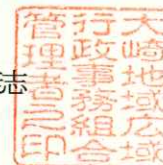 志
大崎地域広域
行政事務組合
管理者之印